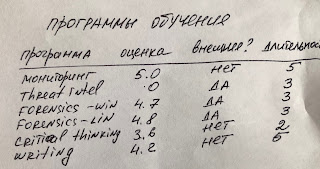 программы обучения
программа оценка внешнее? длительнос
мониторинг 5.0 нет 5
threat intel .0 да 3
forensics-win 4.7 да 3
forensics-lin 4.8 да 3
critical thinking 3.6 нет 2
writing 4.2 нет 5